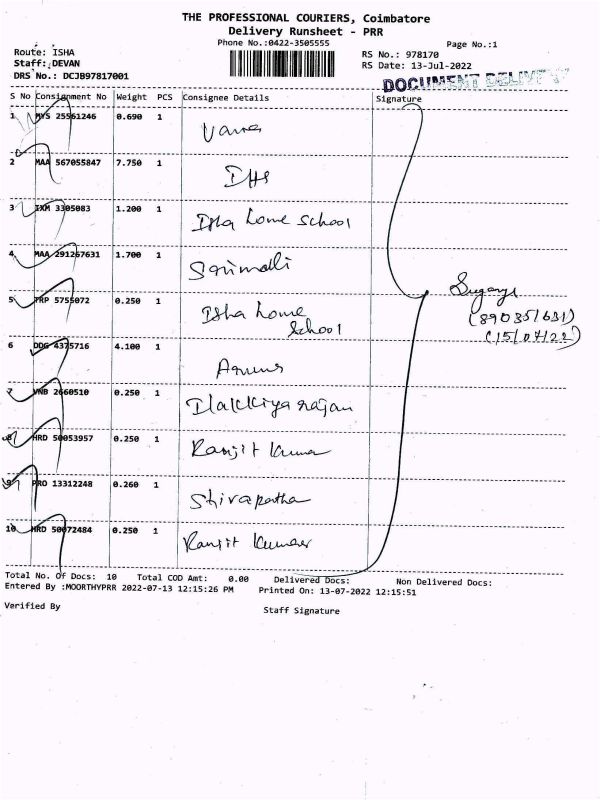 THE PROFESSIONAL COURIERS, Coimbatore
Delivery Runsheet - PRR
Phone No.:0422-3505555
Page No.:1
Route: ISHA
Staff: DEVAN
DRS No.: DCJB97817001
RS No.: 978170
RS Date: 13-Jul-2022
DOCUMENT DELIVERY
S No Consignment No Weight PCS Consignee Details Signature
1 MYS 25561246 0.690 1
2 MAA 567055847 7.750 1 DHS
3 IXM 3305083 1.200 1 Isha home school
4 MAA 291267631 1.700 1
5 TRP 5755072 0.250 1 Isha home
school
6 DDG 4375716 4.100 1
7 VNB 2660510 0.250 1 Ilakkiya rajan
8 HRD 50053957 0.250 1 Ranjit Kumar
9 PRO 13312248 0.260 1
10 HRD 50072484 0.250 1 Ranjit Kumar
(15/07/22)
Total No. Of Docs: 10 Total COD Amt: 0.00 Delivered Docs: Non Delivered Docs:
Entered By :MOORTHYPRR 2022-07-13 12:15:26 PM Printed On: 13-07-2022 12:15:51
Verified By
Staff Signature